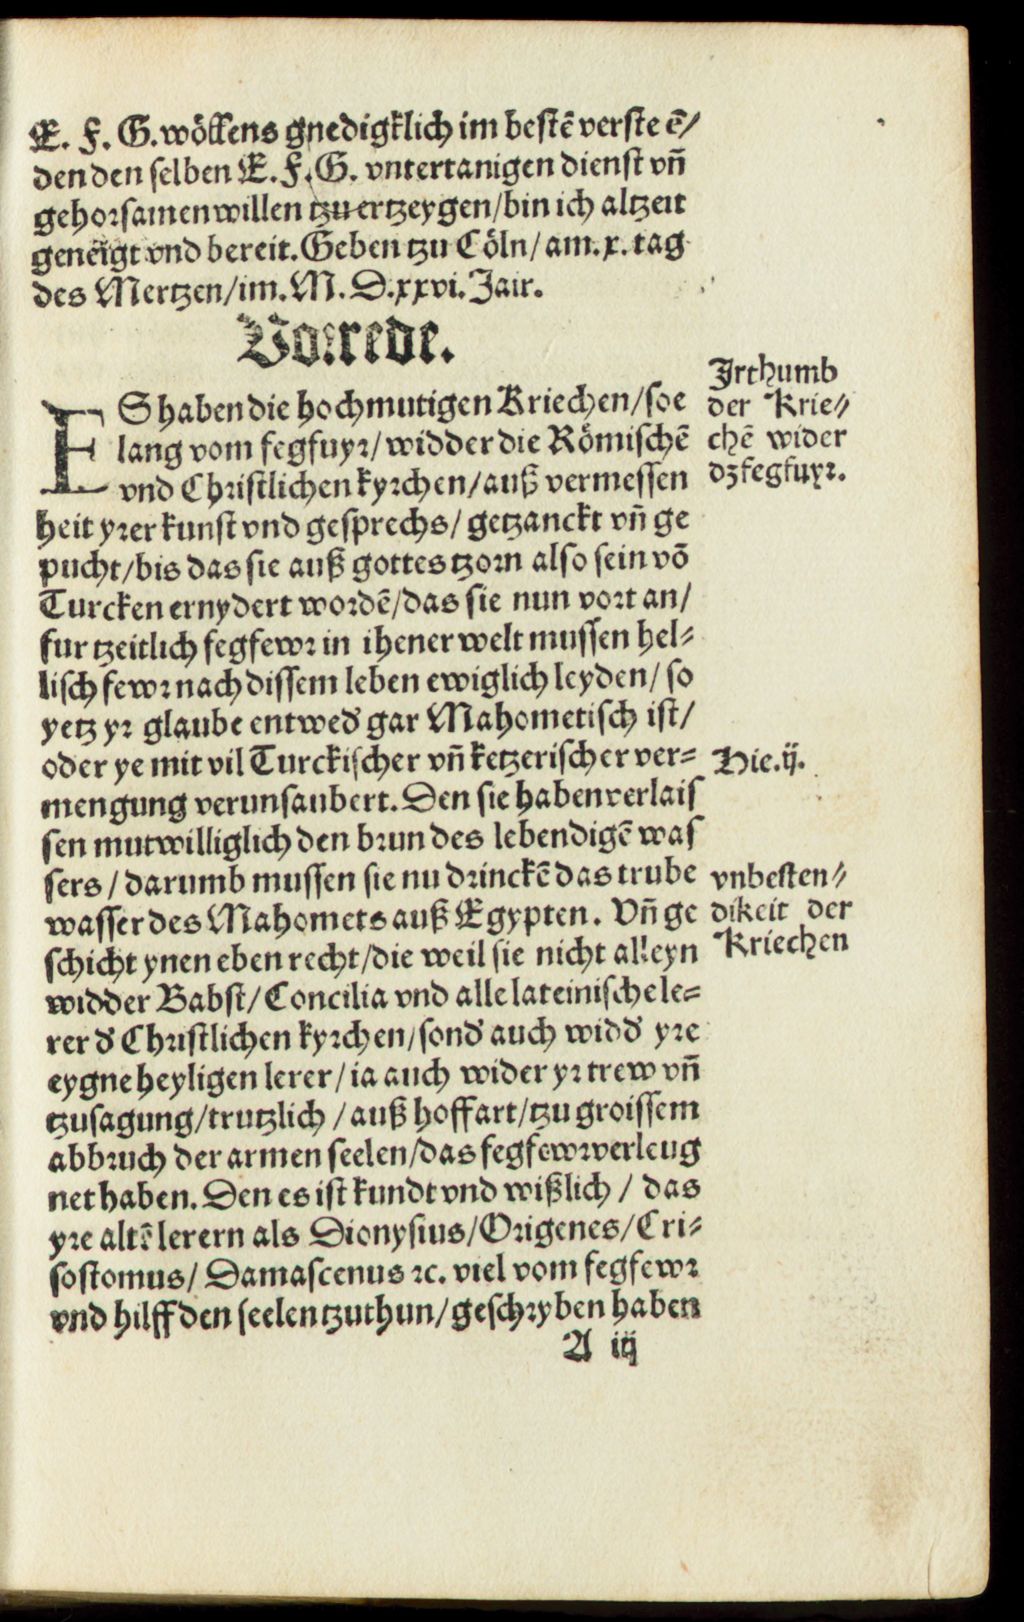 E. F. G. wöllens gnedigklich im bestē verste ē/
den den selben E. F. G. vntertanigen dienst vn̄
gehorsamen willen tzu ertzeygen/ bin ich altzeit
geneigt vnd bereit. Geben tzu Cöln/ am. x. tag
des Mertzen/ im. M. D. xxvi. Jair.
Vorrede.
ES haben die hochmutigen Kriechen/ soe
lang vom fegfuyr/ widder die Römischē
vnd Christlichen kyrchen/ auß vermessen
heit yrer kunst vnd gesprechs/ getzanckt vn̄ ge
pucht/ bis das sie auß gottes tzorn also sein vō
Turcken ernydert wordē/ das sie nun vort an/
fur tzeitlich fegfewr in ihener welt mussen hel⸗
lisch fewr nach dissem leben ewiglich leyden/ so
yetz yr glaube entwed̛ gar Mahometisch ist/
oder ye mit vil Turckischer vn̄ ketzerischer ver⸗
mengung verunsaubert. Den sie haben verlais
sen mutwilliglich den brun des lebendigē was
sers/ darumb mussen sie nu drinckē das trube
wasser des Mahomets auß Egypten. Vn̄ ge
schicht ynen eben recht/ die weil sie nicht alleyn
widder Babst/ Concilia vnd alle lateinische le⸗
rer d̛ Christlichen kyrchen/ sond̛ auch widd̛ yre
eygne heyligen lerer/ ia auch wider yr trew vn̄
tzusagung/ trutzlich/ auß hoffart/ tzu groissem
abbruch der armen seelen/ das fegfewr verleug
net haben. Den es ist kundt vnd wißlich/ das
yre altē lerern als Dionysius/ Origenes/ Cri⸗
sostomus/ Damascenus ꝛc. viel vom fegfewr
vnd hilff den seelen tzuthun/ geschryben haben
A iij
Jrthumb
der Krie⸗
chē wider
dz fegfuyr.
Hie. ij.
vnbesten⸗
dikeit der
Kriechen